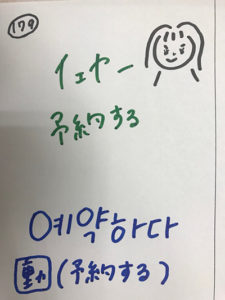 179
イェヤー
予約する
예약하다
動 (予約する)